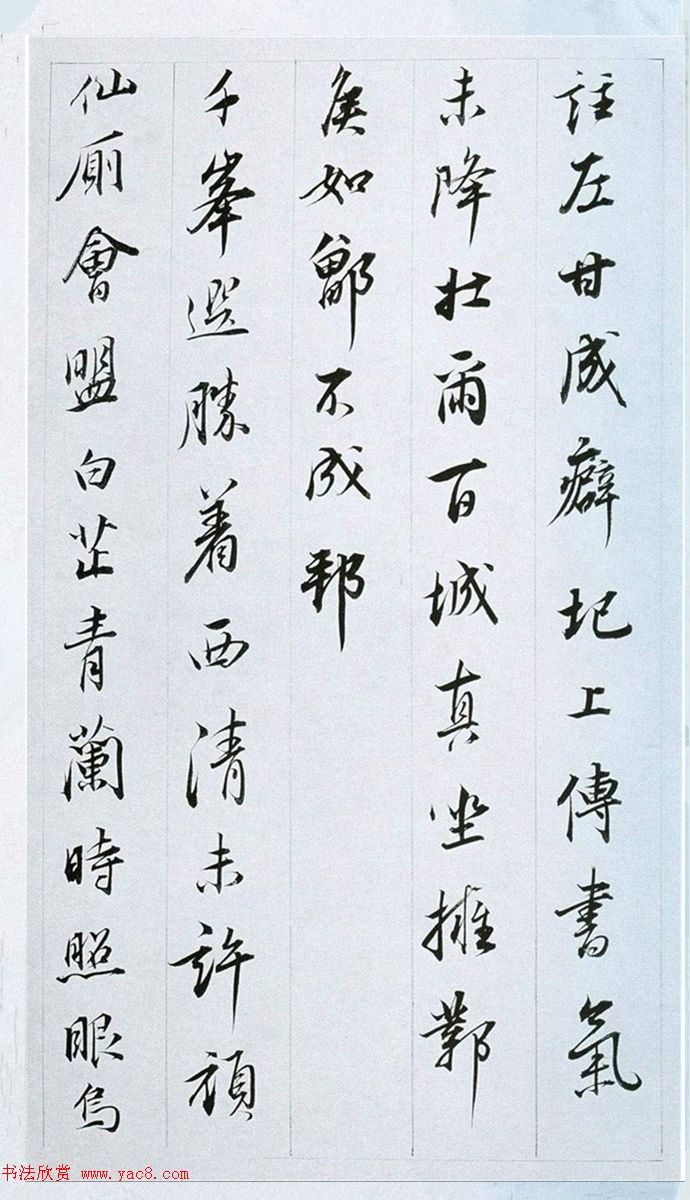 註左甘成癖圯上傳書氣
未降壯爾百城真坐擁鄴
侯如鄶不成邦
千峯選勝着西清未許頑
仙廁會盟白芷青蘭時照眼烏
书法欣赏 www.yac8.com